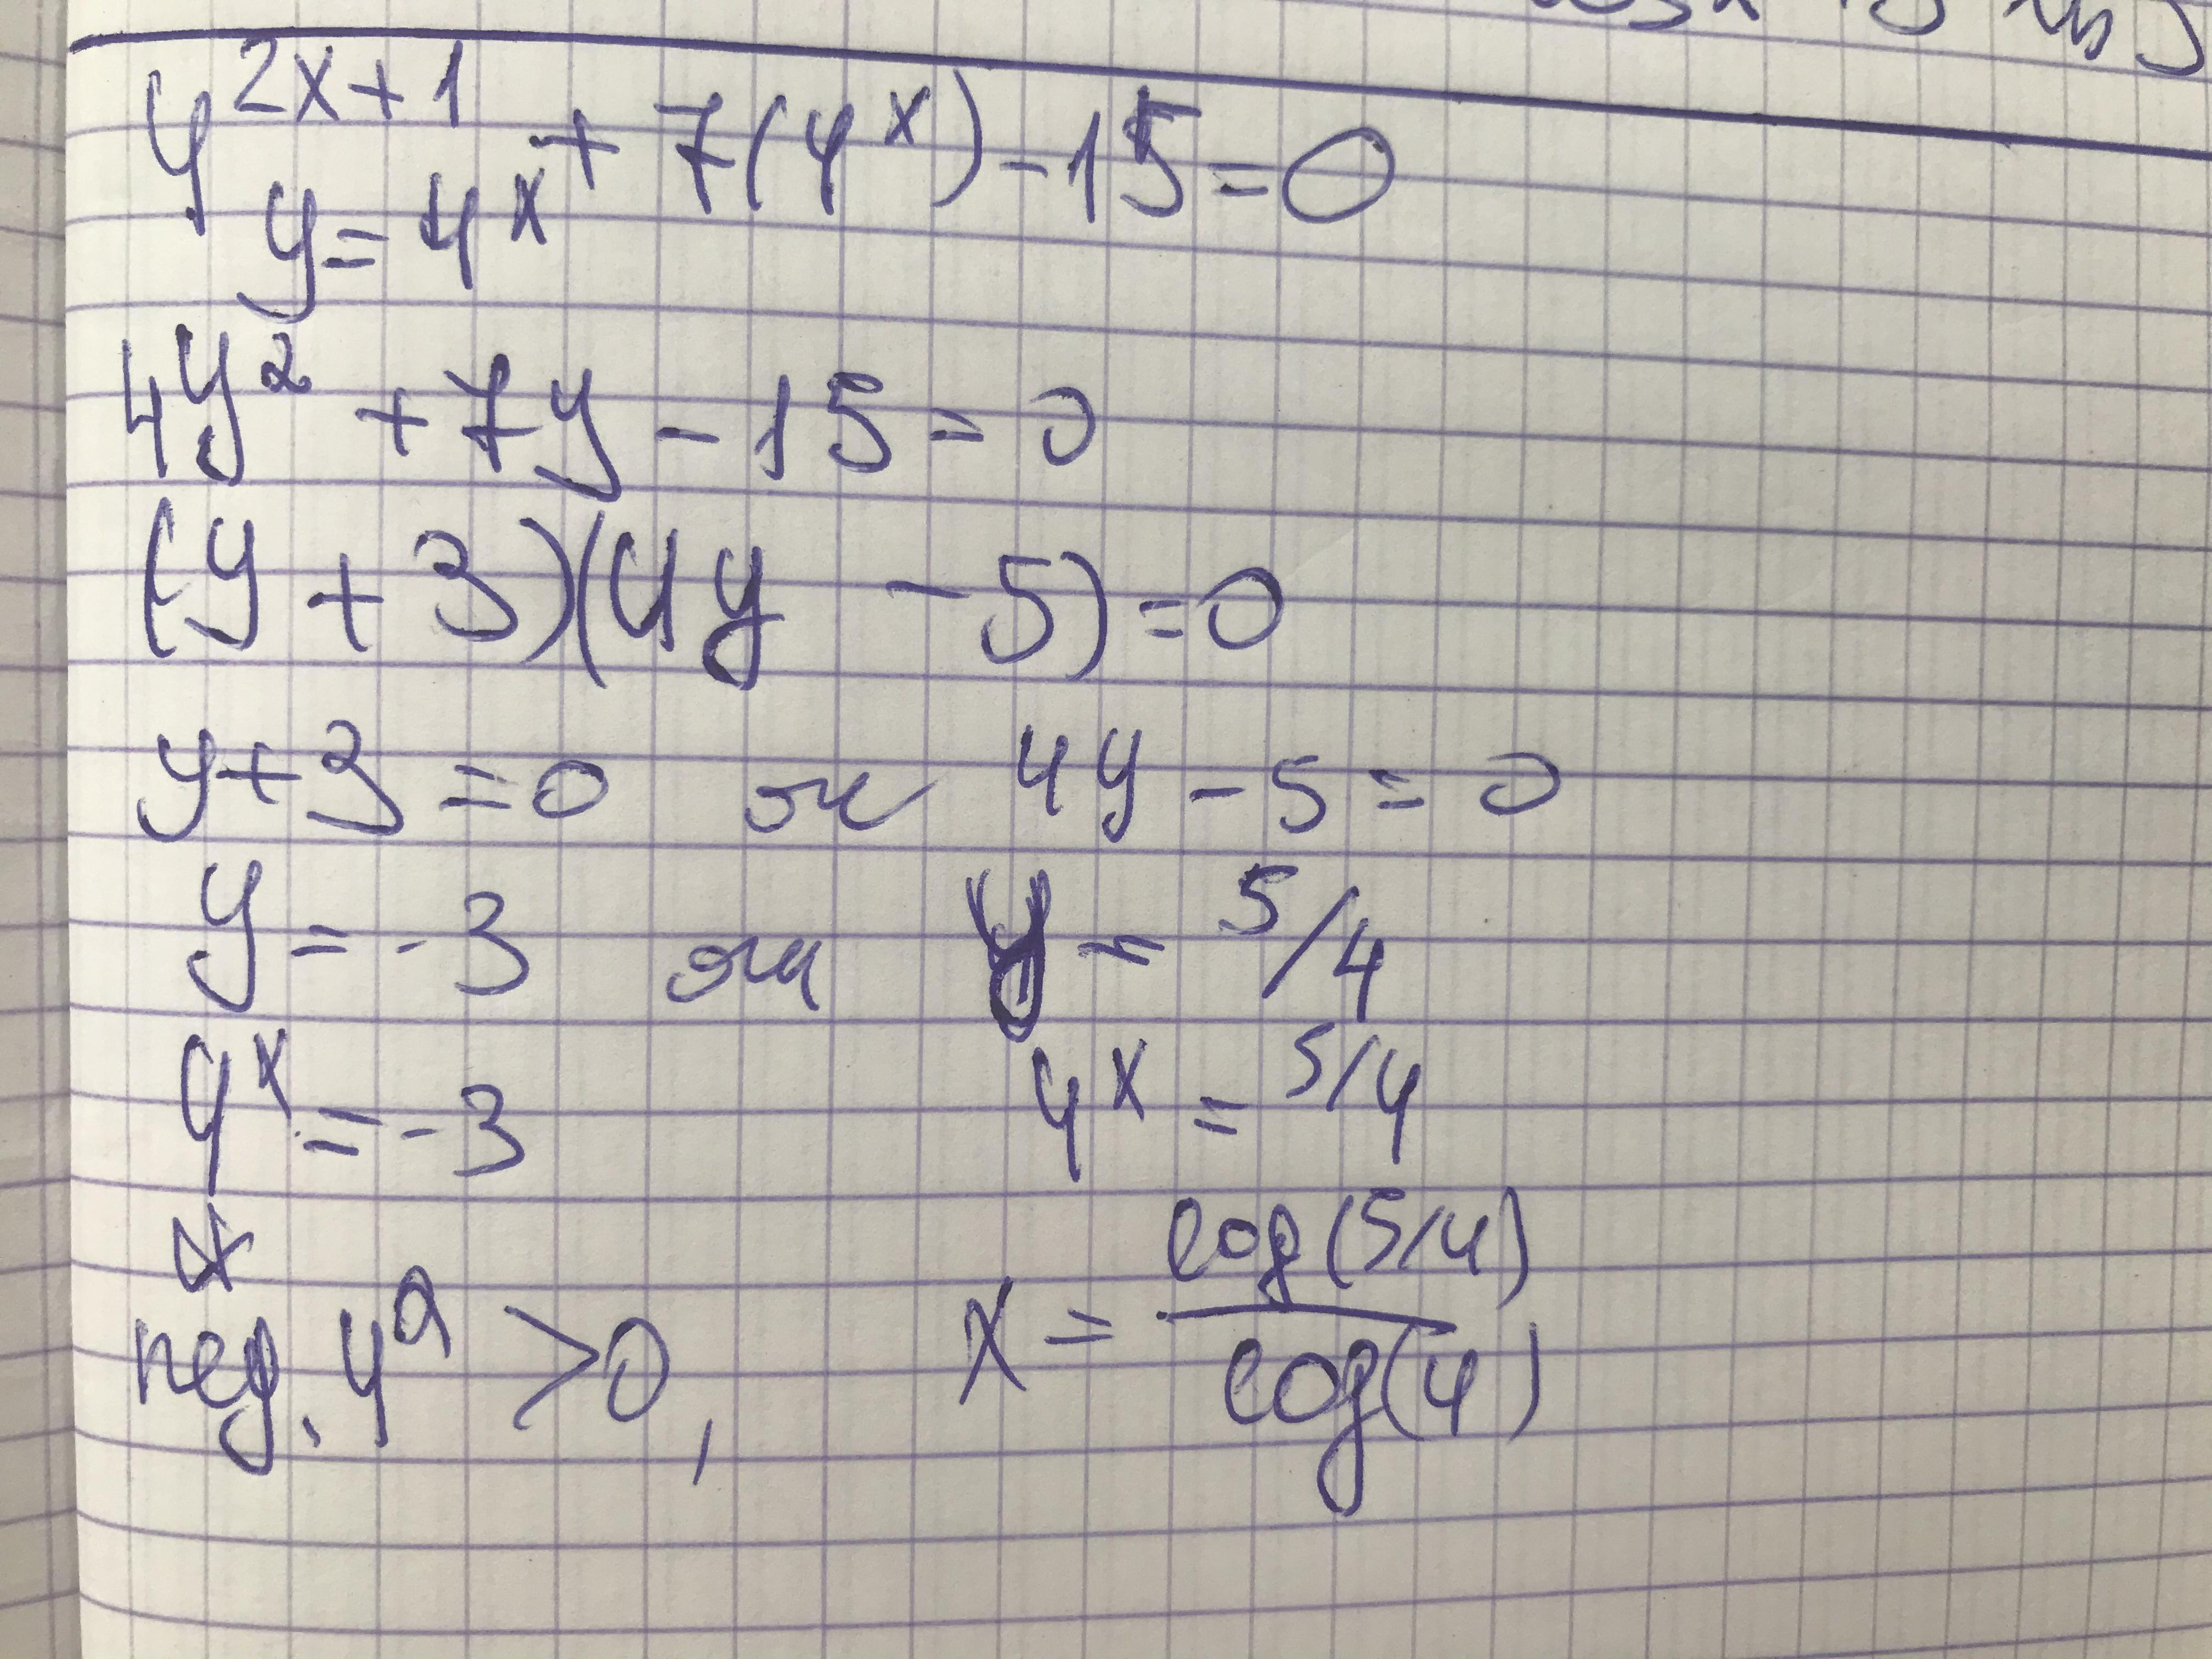 4^{2x+1} + 7(4^x) - 15 = 0
y = 4^x
4y² + 7y - 15 = 0
(y + 3)(4y - 5) = 0
y + 3 = 0 or 4y - 5 = 0
y = -3 or y = 5/4
4^x = -3 4^x = 5/4
neg. 4^a > 0, x = log(5/4) / log(4)